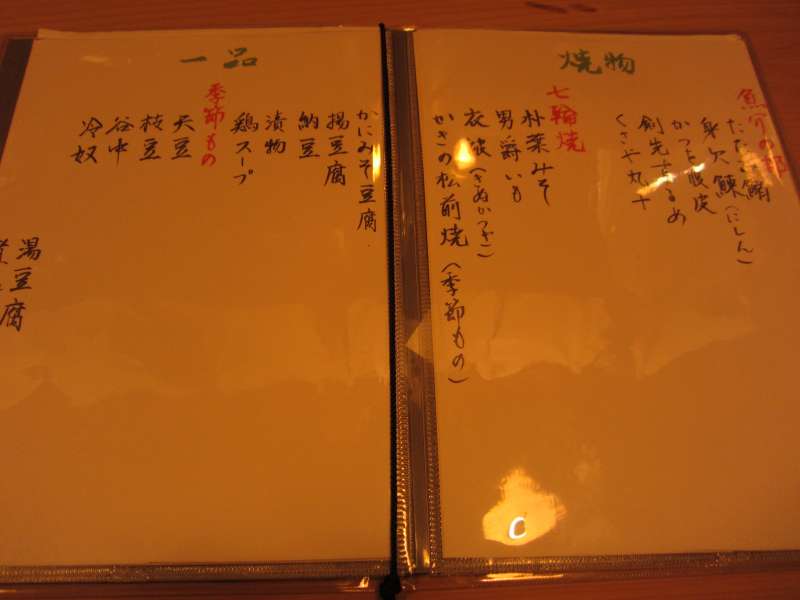 焼物
魚介の部
身欠鰊(にしん)
かつを腹皮
剣先するめ
くさや丸干
七輪焼
朴葉みそ
男爵いも
衣被(きぬかつぎ)
かきの松前焼(季節もの)
一品
かにみそ豆腐
揚豆腐
納豆
漬物
鶏スープ
季節もの
天豆
枝豆
谷中
冷奴
湯豆腐